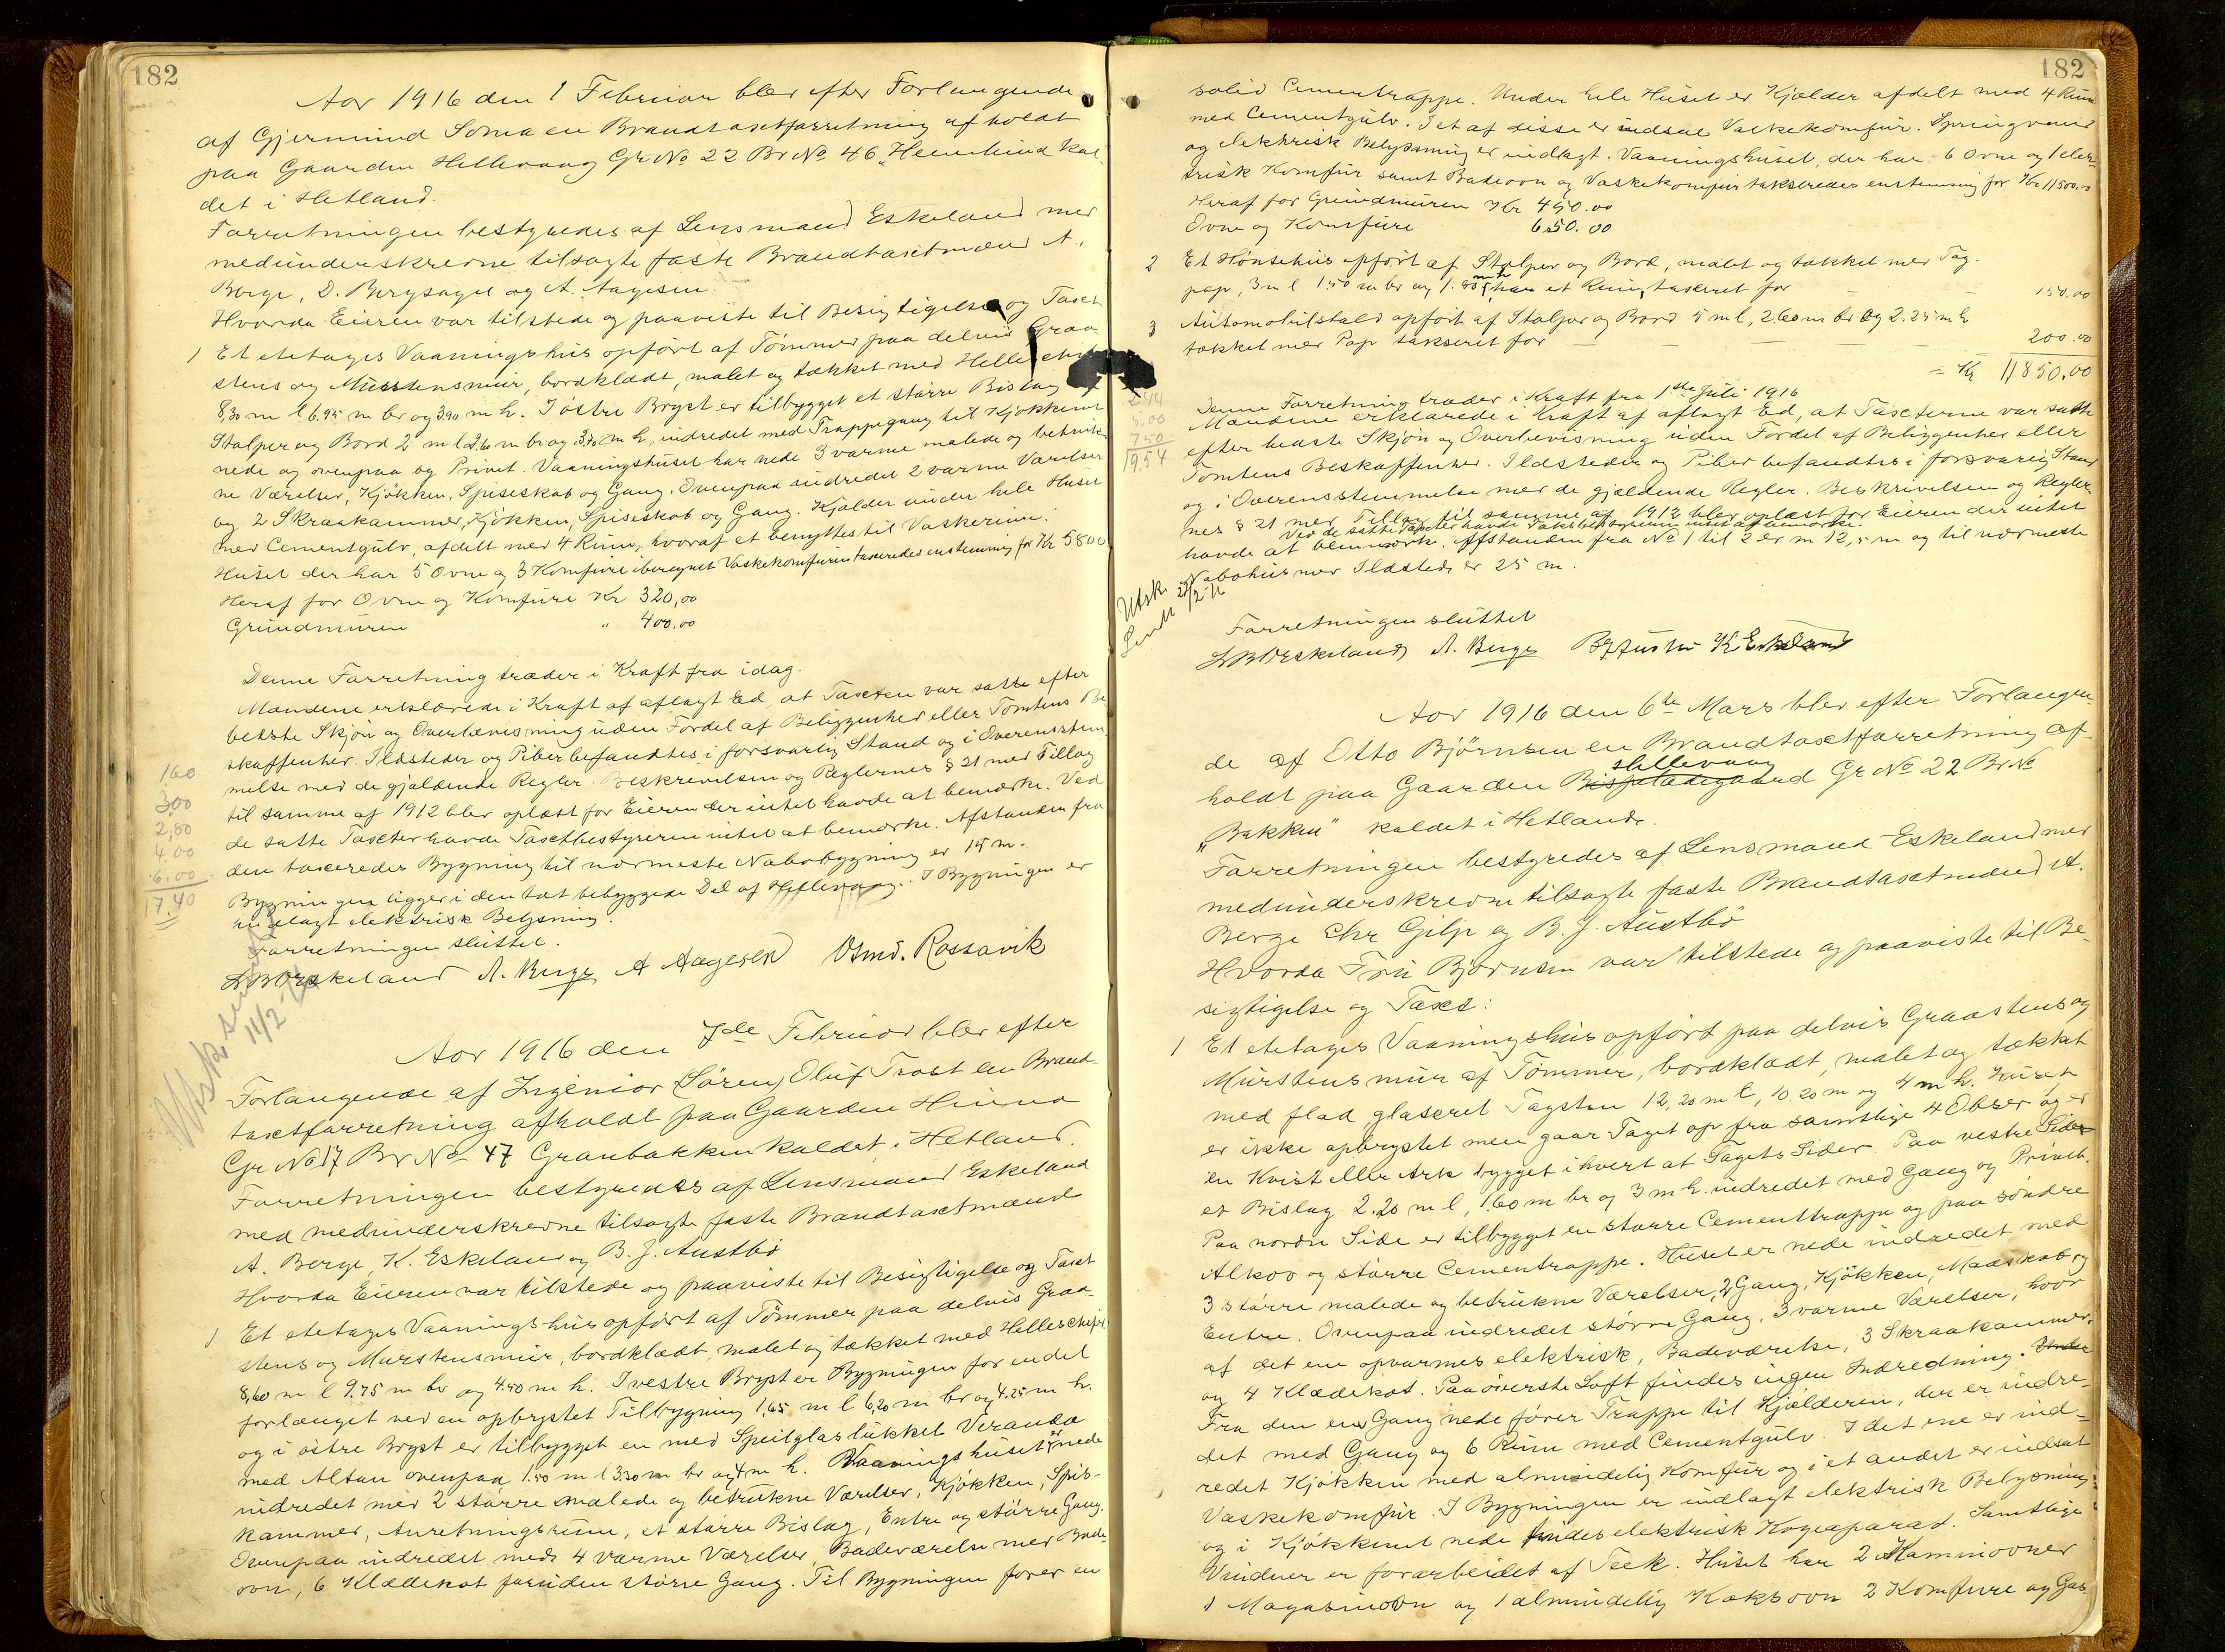 182
Aar 1916 den 1 Februar blev efter Forlangende
af Gjermund Soma en Brandtaxtforretning afholdt
paa Gaarden Hillevaag Gr No 22 Br No 46 "Heimlund" kal
det i Hetland.
Forretningen bestyredes af Lensmand Eskeland med
medunderskrevne tilsagte faste Brandtaxtmænd A.
Berge, D. Bergsagel og A. Aagesen.
Hvorda Eieren var tilstede og paaviste til Besigtigelse og Taxt
1 Et etetages Vaaningshus opført af Tømmer paa delvis Graa
stens og Murstensmur, bordklædt, malet og tækket med Helleskifer
8,30 m l 6.95 m br og 3.90 m h. I østre Bryst er tilbygget et større Bislag af
Stolper og Bord 2 m l 2.60 m br og 3.70 m h, indredet med Trappegang til Kjøkkenet
nede og ovenpaa og Privet. Vaaningshuset har nede 3 varme malede og betrukk
ne Værelser, Kjøkken, Spiseskab og Gang. Ovenpaa indredet 2 varme Værelser
og 2 Skraakammer, Kjøkken, Spiseskab og Gang. Kjælder under hele Huset
med Cementgulv, afdelt med 4 Rum, hvoraf et benyttes til Vaskerum.
Huset der har 5 Ovne og 3 Komfure iberegnet Vaskekomfuren taxeredes enstemmig for Kr 5800
Heraf for Ovne og Komfure Kr 320,00
Grundmuren " 400,00
Denne Forretning træder i Kraft fra idag.
Mændene erklærede i Kraft af aflagt Ed, at Taxten var satte efter
bedste Skjøn og Overbevisning uden Fordel af Beliggenhed eller Tomtens Be
skaffenhed. Ildsteder og Piber befandtes i forsvarlig Stand og i Overensstem
melse med de gjældende Regler. Beskrivelsen og Reglernes § 21 med Tillæg
til samme af 1912 blev oplæst for Eieren der intet havde at bemærke. Ved
de satte Taxter havde Taxtbestyreren intet at bemærke. Afstanden fra
den taxeredes Bygning til nærmeste Nabobygning er 15 m.
Bygningen ligger i den tæt bebyggede Del af Hillevaag. I Bygningen er
indlagt elektrisk Belysning.
Forretningen sluttet.
160
300
2,80
4.00
6.00
17.40
Eskeland A. Berge A Aagesen Osmd. Rossavik
Utsk sendt 11/2 16
Aar 1916 den 7de Februar blev efter
Forlangende af Ingeniør Søren Oluf Trost en Brand
taxtforretning afholdt paa Gaarden Hinna
Gr No 17 Br No 47 Granbakken kaldet i Hetland.
Forretningen bestyredes af Lensmand Eskeland
med medunderskrevne tilsagte faste Brandtaxtmænd
A. Berge, K. Eskeland og B. J. Austbø
Hvorda Eieren var tilstede og paaviste til Besigtigelse og Taxt
1 Et etetages Vaaningshus opført af Tømmer paa delvis Graa
stens og Murstensmur, bordklædt, malet og tækket med Helleskifer
8,60 m l 9.75 m br og 4.50 m h. I vestre Bryst er Bygningen for en del
forlænget ved en opbrystet Tilbygning 1,65 m l 6,20 m br og 4.25 m h.
og i østre Bryst er tilbygget en med Speilglas lukket Veranda
med Altan ovenpaa 1.50 m l 3.30 m br og 4 m h. Vaaningshuset er nede
indredet med 2 større malede og betrukne Værelser, Kjøkken, Spis-
kammer, Anretningsrum, et større Bislag, Entre og større Gang.
Ovenpaa indredet med 4 varme Værelser, Badeværelse med Bade
ovn, 6 Klædekot foruden større Gang. Til Bygningen fører en
182
solid Cementrappe. Under hele Huset er Kjælder afdelt med 4 Rum
med Cementgulv. I et af disse er indsat Vaskekomfur. Springvand
og elektrisk Belysning er indlagt. Vaaningshuset, der har 6 Ovne og 1 elek
trisk Komfur samt Badeovn og Vaskekomfur taksteredes enstemmig for Kr 11500.00
Heraf for Grundmuren Kr 450.00
Ovne og Komfure 650.00
2 Et Hønsehus opført af Stolper og Bord, malet og tækket med Tag
pap, 3 m l 1.50 m br og 1.80 m h har et Rum, taxeret for 150.00
3 Automobilstald opført af Stolper og Bord 5 m l, 2.60 m br og 2.25 m h
tækket med Pap takseret for 200.00
= Kr 11850.00
Denne Forretning træder i Kraft fra 1ste Juli 1916
Mændene erklærede i Kraft af aflagt Ed, at Taxterne var satte
efter bedste Skjøn og Overbevisning uden Fordel af Beliggenhed eller
Tomtens Beskaffenhed. Ildsteder og Piber befandtes i forsvarlig Stand
og i Overensstemmelse med de gjældende Regler. Beskrivelsen og Regler
nes § 21 med Tillæg til samme af 1912 blev oplæst for Eieren der intet
Ved de satte Taxter havde Takstbestyreren intet at bemærke.
havde at bemærke. Afstanden fra No 1 til 2 er m 12,5 m og til nærmeste
Nabohus med Ildsted er 25 m.
5.00
7.50
19.54
Utsk
Sendt 23/2 16
Forretningen sluttet
Eskeland A. Berge B J Austbø K Eskeland
Aar 1916 den 6te Mars blev efter Forlangen
de af Otto Bjørnsen en Brandtaxtforretning af
Hillevaag
holdt paa Gaarden Bispeladegaard Gr No 22 Br No
"Bakken" kaldet i Hetland.
Forretningen bestyredes af Lensmand Eskeland med
medunderskrevne tilsagte faste Brandtaxtmænd A.
Berge Chr Gilje og B. J. Austbø
Hvorda Fru Bjørnsen var tilstede og paaviste til Be
sigtigelse og Taxt:
1 Et etetages Vaaningshus opført paa delvis Graastens og
Murstensmur af Tømmer, bordklædt, malet og tækket
med flad, glaseret Tagsten 12,20 m l, 10.20 m og 4 m h. Huset
er ikke opbrystet men gaar Taget op fra samtlige 4 Obser og er
en Kvist eller Ark bygget i hvert af Tagets Sider. Paa vestre Side
er Bislag 2.20 m l, 1.60 m br og 3 m h. indredet med Gang og Priveb.
Paa nordre Side er tilbygget en større Cementtrappe og paa søndre
Alkov og større Cementrappe. Huset er nede indredet med
3 større malede og betrukne Værelser, 2 Gang, Kjøkken, Madskab og
Entre. Ovenpaa indredet større Gang, 3 varme Værelser, hvor
af det ene opvarmes elektrisk, Badeværelse, 3 Skraakammer,
og 4 Klædekot. Paa øverste Loft findes ingen Indredning. Under
Fra den ene Gang nede fører Trappe til Kjælderen, der er indre-
det med Gang og 6 Rum med Cementgulv. I det ene er ind-
redet Kjøkken med almindelig Komfur og i et andet er indsat
Vaskekomfur. I Bygningen er indlagt elektrisk Belysning
og i Kjøkkenet nede findes elektrisk Kogeaparat. Samtlige
Vinduer er forarbeidet af Teek. Huset har 2 Kaminovner
1 Magasinovn og 1 almindelig Koksovn 2 Komfure og Gas